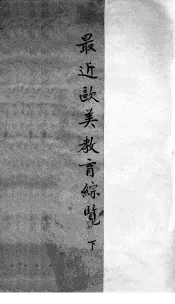 最近歐美教育綜覽 下